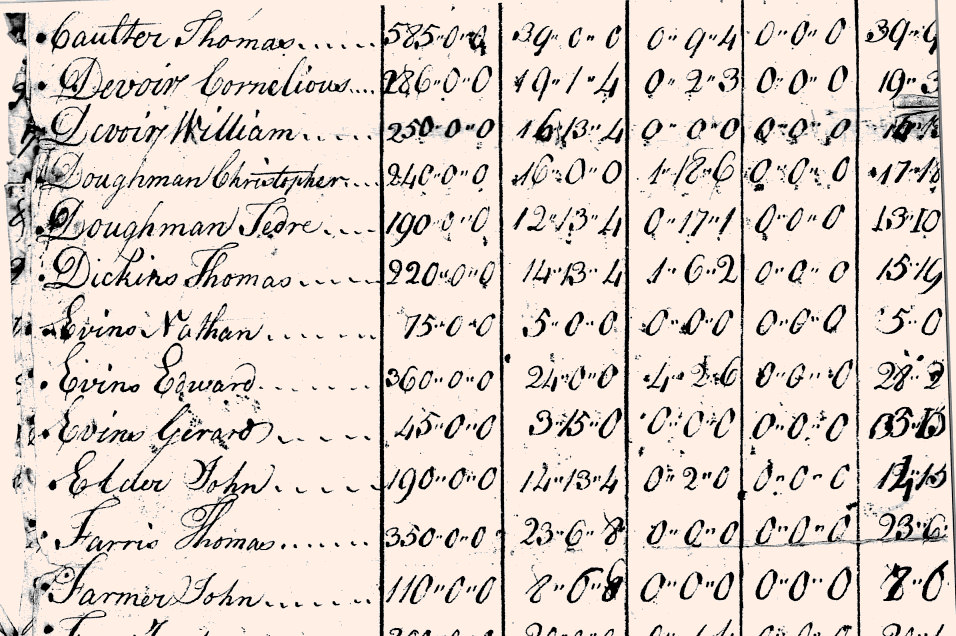 Caulter Thomas..... 585"0"0 39"0"0 0"9"4 0"0"0 39"9
Devoir Cornelious.... 286"0"0 19"1"4 0"2"3 0"0"0 19"3
Devoir William..... 250"0"0 16"13"4 0"0"0 0"0"0 16"13
Doughman Christopher.... 240"0"0 16"0"0 1"18"6 0"0"0 17"18
Doughman Tedre..... 190"0"0 12"13"4 0"17"1 0"0"0 13"10
Dickins Thomas..... 220"0"0 14"13"4 1"6"2 0"0"0 15"19
Evins Nathan...... 75"0"0 5"0"0 0"0"0 0"0"0 5"0
Evins Edward....... 360"0"0 24"0"0 4"2"6 0"0"0 28"2
Evins Gerard...... 45"0"0 3"15"0 0"0"0 0"0"0
Elder John....... 190"0"0 14"13"4 0"2"0 0"0"0
Farris Thomas....... 350"0"0 23"6"8 0"0"0 0"0"0 23"6
Farmer John....... 110"0"0 0"0"0 0"0"0